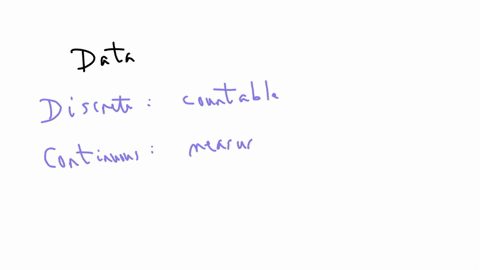 Data
Discrete : countable
Continuous : measur